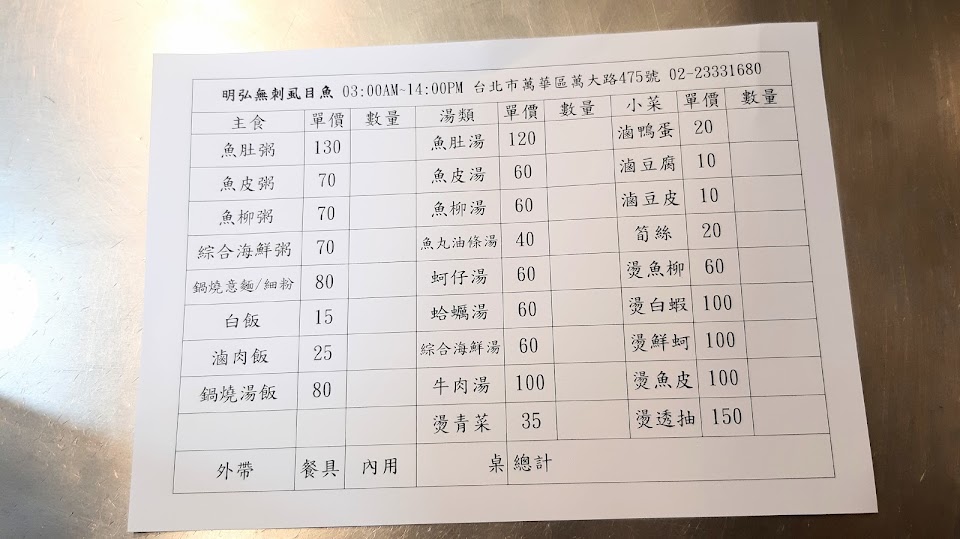 明弘無刺虱目魚 03:00AM~14:00PM 台北市萬華區萬大路475號 02-23331680
主食 單價 數量 湯類 單價 數量 小菜 單價 數量
魚肚粥 130 魚肚湯 120 滷鴨蛋 20
魚皮粥 70 魚皮湯 60 滷豆腐 10
魚柳粥 70 魚柳湯 60 滷豆皮 10
綜合海鮮粥 70 魚丸油條湯 40 筍絲 20
鍋燒意麵/細粉 80 蚵仔湯 60 燙魚柳 60
白飯 15 蛤蠣湯 60 燙白蝦 100
滷肉飯 25 綜合海鮮湯 60 燙鮮蚵 100
鍋燒湯飯 80 牛肉湯 100 燙魚皮 100
燙青菜 35 燙透抽 150
外帶 餐具 內用 桌 總計